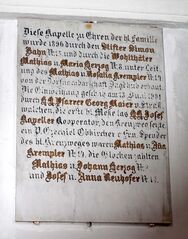 Diese Kapelle zu Ehren der hl. Familie
wurde 1899 durch den Stifter Simon
Hahn Nr. 17 und durch die Wohlthäter
Mathias u Maria Herzog Nr. 8 unter Leit-
ung des Mathias u Rosalia Krempler Nr. 19
von der
Die Einweihung geschah am 23. Juli 1901
durch Pfarrer Georg Maier v. St.
wobei die erste hl. Messe las Josef
Kapeller Cooperator, den Kreuzweg setzte
ein P. Ezechiel Obkircher o. Fr. Spender
des hl. Kreuzweges waren Mathias u Ida
Krempler Nr. 19. die Glocken zahlten
Mathias u Johann Herzog Nr.
und Josef u Anna Neuhofer Nr. 12.